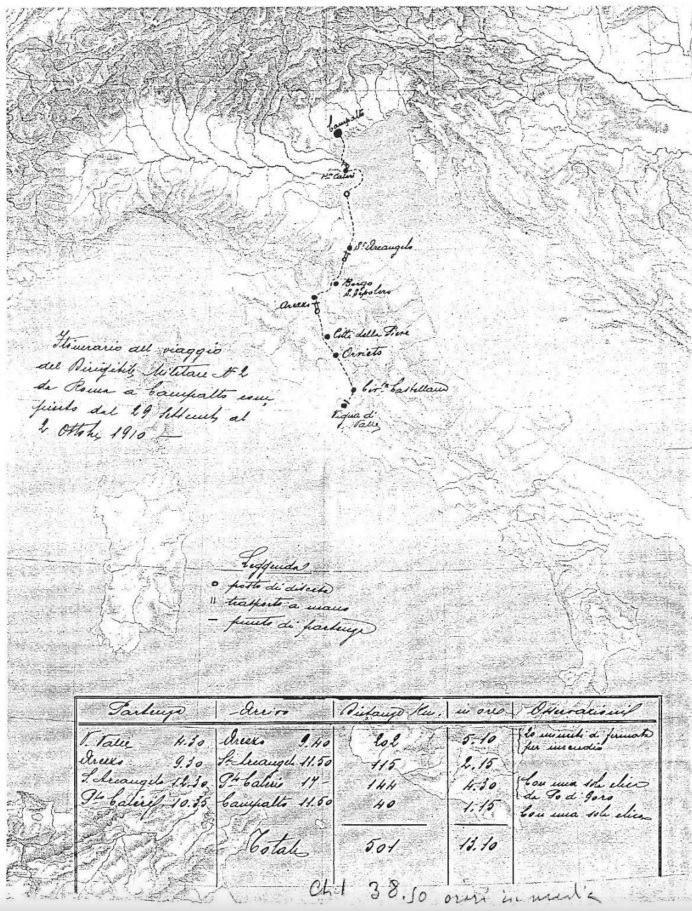 Campalto
P.to Caleri
S.t Arcangelo
Borgo
S. Sepolcro
Arezzo
Città della Pieve
Orvieto
Civ.ta Castellana
Vigna di
Valle
Itinerario del viaggio
del Dirigibile Militare N 2
da Roma a Campalto com
piuto dal 29 Settemb al
2 Ottobre 1910 —
Leggenda
o posto di discesa
" trasporto a mano
— punto di partenza
Partenze | Arrivo | Distanze Km. | in ore | Osservazioni
V. Valle 4.30 Arezzo 9.40 202 5.10 20 minuti di fermata
per incendio
Arezzo 9.30 S.t Arcangelo 11.50 115 2.15
S. Arcangelo 12.30 P.to Caleri 17 144 4.30 Con una sola elica
da Po di Goro
P.to Caleri 10.35 Campalto 11.50 40 1.15 Con una sola elica
Totale 501 13.10
38.50 orari in media